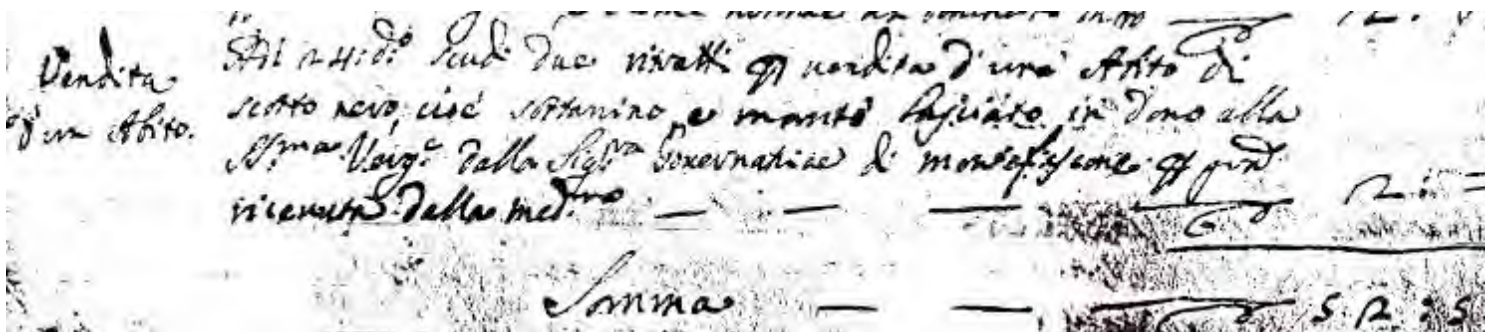 Vendita
d'un Abito.
Adi 24 id.º Scudi due ritratti p vendita d'una Abito di
scotto nero, cioè sottanino, e manto lasciato in dono alla
SS.ma Verg.e dalla Sig.ra Governatrice di Montefiascone p
ricevuta della med.ma — — — 2 : =
Somma — — 52 : 5